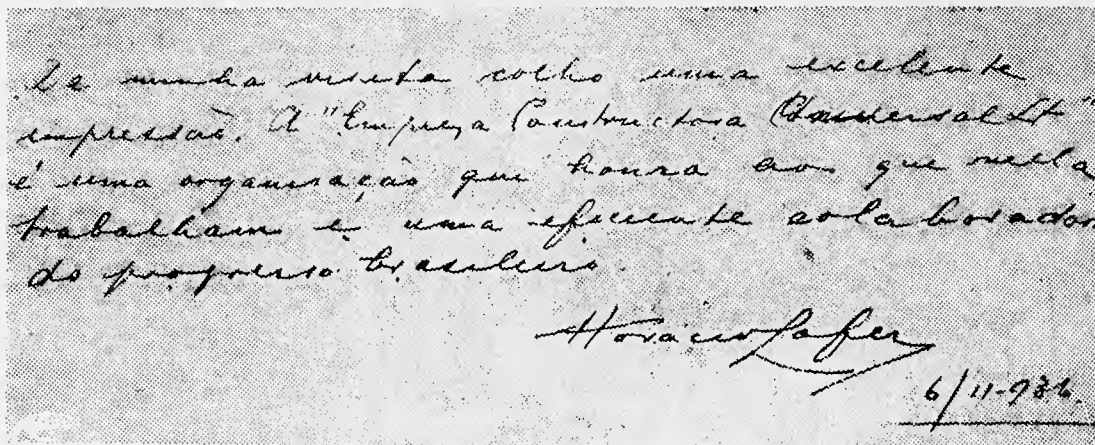 De minha visita colho uma excelente
impressão. A "Empreza Constructora Universal Lt"
é uma organisação que honra aos que nella
trabalham e uma efficiente collaborador
do progresso brasileiro.
Horacio Lafer
6/11-936.